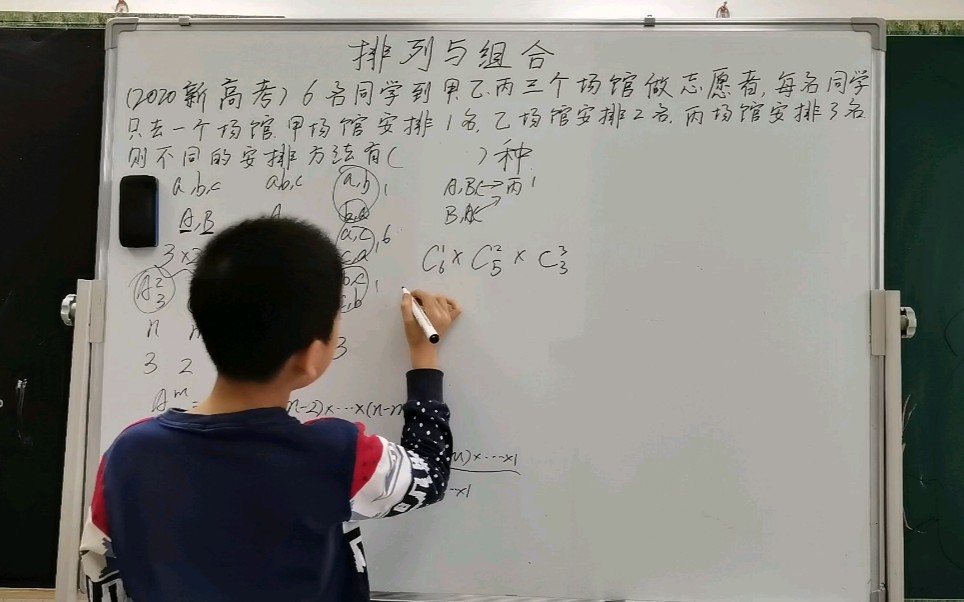 排列与组合
(2020新高考) 6名同学到甲、乙、丙三个场馆做志愿者,每名同学
只去一个场馆,甲场馆安排1名,乙场馆安排2名,丙场馆安排3名
则不同的安排方法有( )种.
a,b,c a,b,c a,b 1 A,BC→丙1
A,B A b,a B,AC
a,c 1 6
3×2 c,a C₆¹× C₅² × C₃³
A₃² b,c 1
c,b
n
3 2 3
Aᵐ n-2)×⋯×(n-m
)×⋯×1
×1